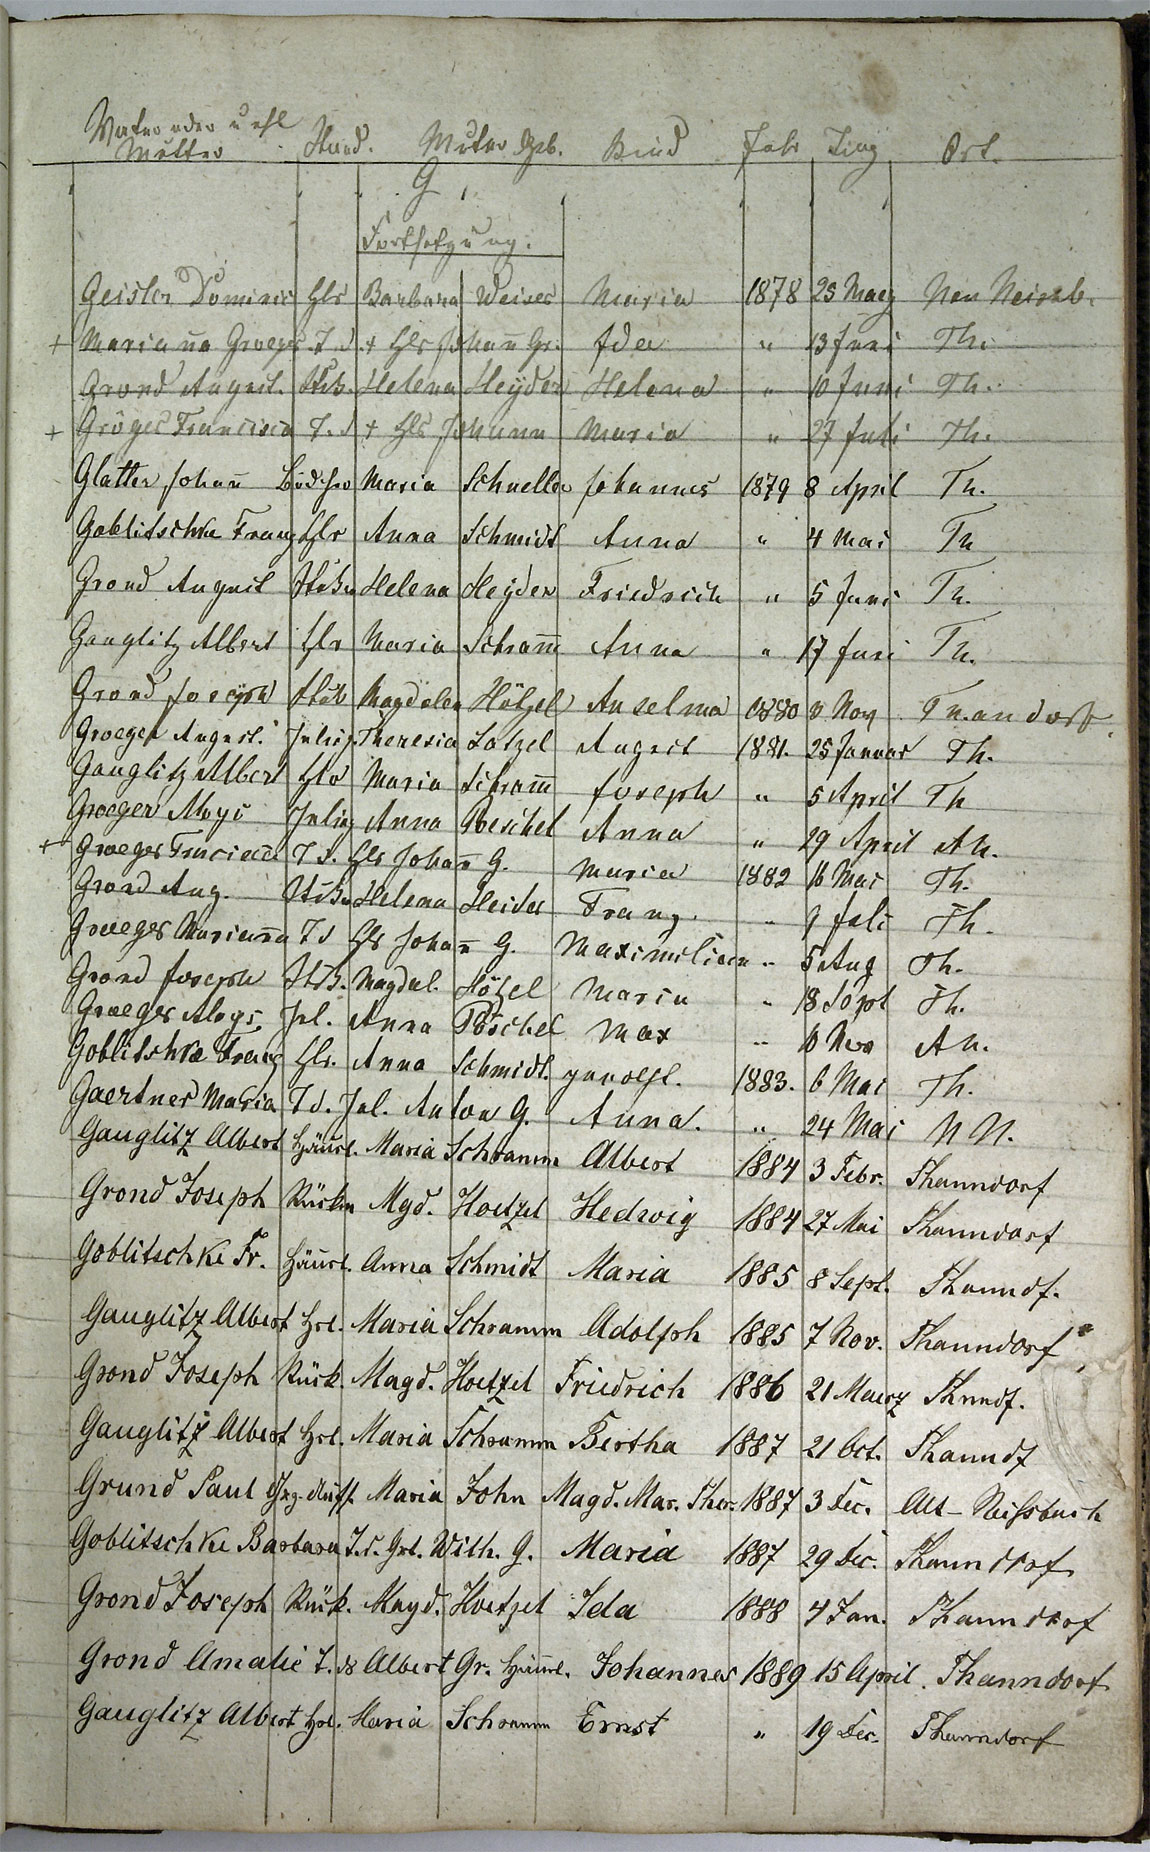 Vater oder unehl
Mutter Stand. Mutter Geb. Kind Jahr Tag Ort.
G
Fortsetzung.
Geisler Dominic Hlr Barbara Weiser Maria 1878 25 Maerz Neu Neissb.
+ Marianna Groeger T. d. + Hlr Johann Gr. Ida " 13 Juni Th.
Grond August. Stb. Helena Heyder Helena " 10 Juni Th.
+ Gröger Francisca T. d + Hlr Johann Maria " 27 Juli Th.
Glatter Johann Maria Schneller Johannes 1879 8 April Th.
Goblitschke Franz Hlr Anna Schmidt Anna " 4 Mai Th
Grond August Helena Heyder Friedrich " 5 Juni Th.
Gauglitz Albert Hlr Maria Schramm Anna " 17 Juni Th.
Grond Joseph Magdalen Hötzel Anselma 1880 8 Nov Thandorf.
Groeger August. Theresia Lotzel August 1881. 25 Januar Th.
Gauglitz Albert Hlr Maria Schramm Joseph " 5 April Th
Groeger Aloys Anna Poeschel Anna " 29 April An.
+ Groeger Franciska T d. Hlr Johann G. Maria 1882 16 Mai Th.
Grond Aug. Helena Heider Franz. " 9 Juli Th.
Groeger Marianna T d Hlr Johann G. Maximilian " 5 Aug Th.
Grond Joseph Stb. Magdal. Hötzel Maria " 18 Sept Th.
Groeger Aloys Jnl. Anna Pöschel Max " 10 Nov An.
Goblitschke Franz Hlr. Anna Schmidt. 1883. 6 Mai Th.
Gaertner Maria T d. Jnl. Anton G. Anna. " 24 Mai N N.
Gauglitz Albert Häusl. Maria Schramm Albert 1884 3 Febr. Thanndorf
Grond Joseph Mgd. Hoetzel Hedwig 1884 27 Mai Thanndorf
Goblitschke Fr. Häusl. Anna Schmidt Maria 1885 8 Sept. Thanndf.
Gauglitz Albert Hsl. Maria Schramm Adolph 1885 7 Nov. Thanndorf
Grond Joseph Rück. Magd. Hoetzel Friedrich 1886 21 Maerz Thnndf.
Gauglitz Albert Hsl. Maria Schramm Bertha 1887 21 Oct. Thanndf
Grund Paul Maria John Magd. Mar. Ther. 1887 3 Dec. Alt-Neissbach
Goblitschke Barbara T. d. Hsl. Wilh. G. Maria 1887 29 Dec. Thanndorf
Grond Joseph Rück. Magd. Hoetzel Ida 1888 4 Jan. Thanndorf
Grond Amalie T. d Albert Gr. Häusl. Johannes 1889 15 April. Thanndorf
Gauglitz Albert Hsl. Maria Schramm Ernst " 19 Dec. Thanndorf